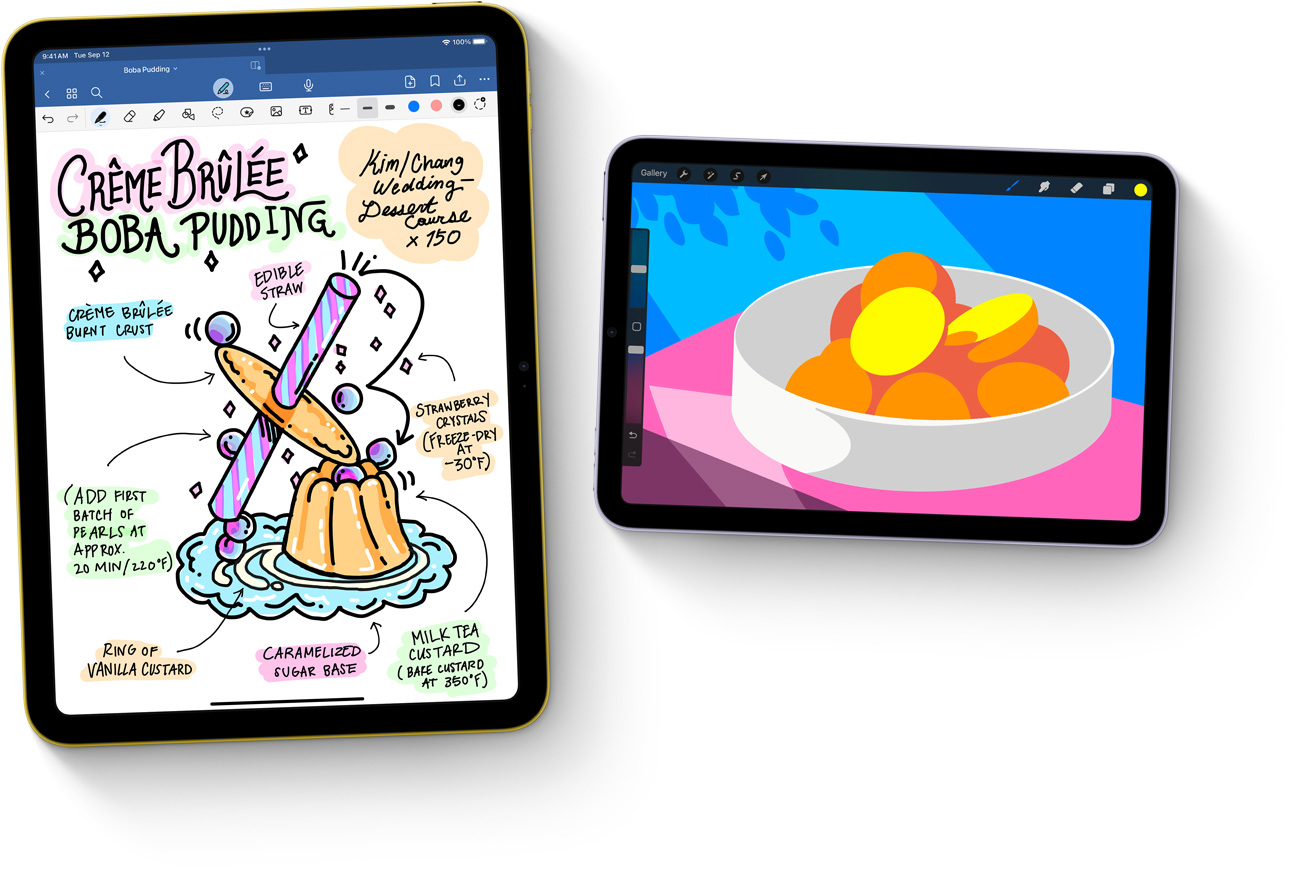 9:41AM Tue Sep 12
100%
Boba Pudding
CRÈME BRÛLÉE
BOBA PUDDING
Kim/Chang
Wedding—
Dessert
Course
x 150
EDIBLE
STRAW
CRÈME BRÛLÉE
BURNT CRUST
STRAWBERRY
CRYSTALS
(FREEZE-DRY
AT
-30°F)
(ADD FIRST
BATCH OF
PEARLS AT
APPROX.
20 MIN/220°F)
RING OF
VANILLA CUSTARD
CARAMELIZED
SUGAR BASE
MILK TEA
CUSTARD
(BAKE CUSTARD
AT 350°F)
Gallery